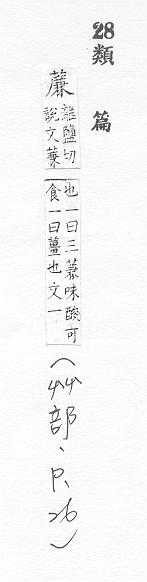 28類 篇
薕
離鹽切
說文蒹
也一曰三薕味酸可
食一曰薑也文一
(艸部、P.26)